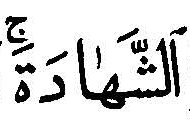 ٱلشَّهَادَةَۚ